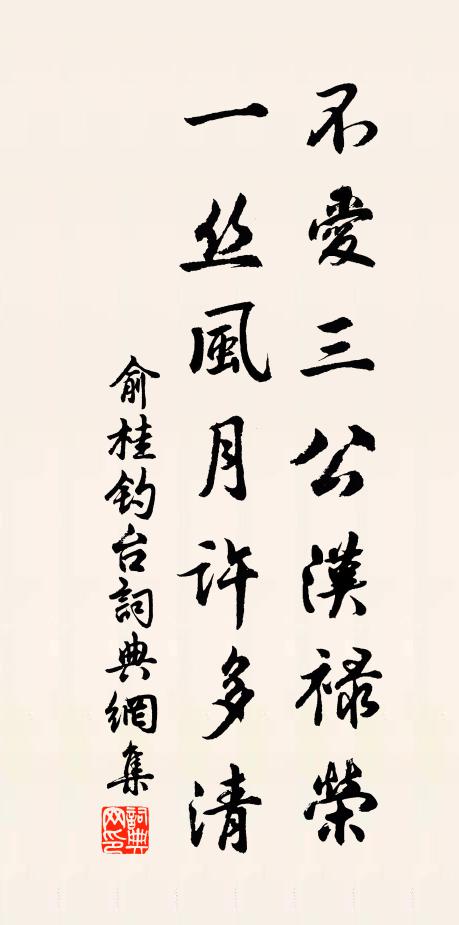 不愛三公漢祿榮
一丝風月許多清
俞桂钓台詞典網集
詞典網印